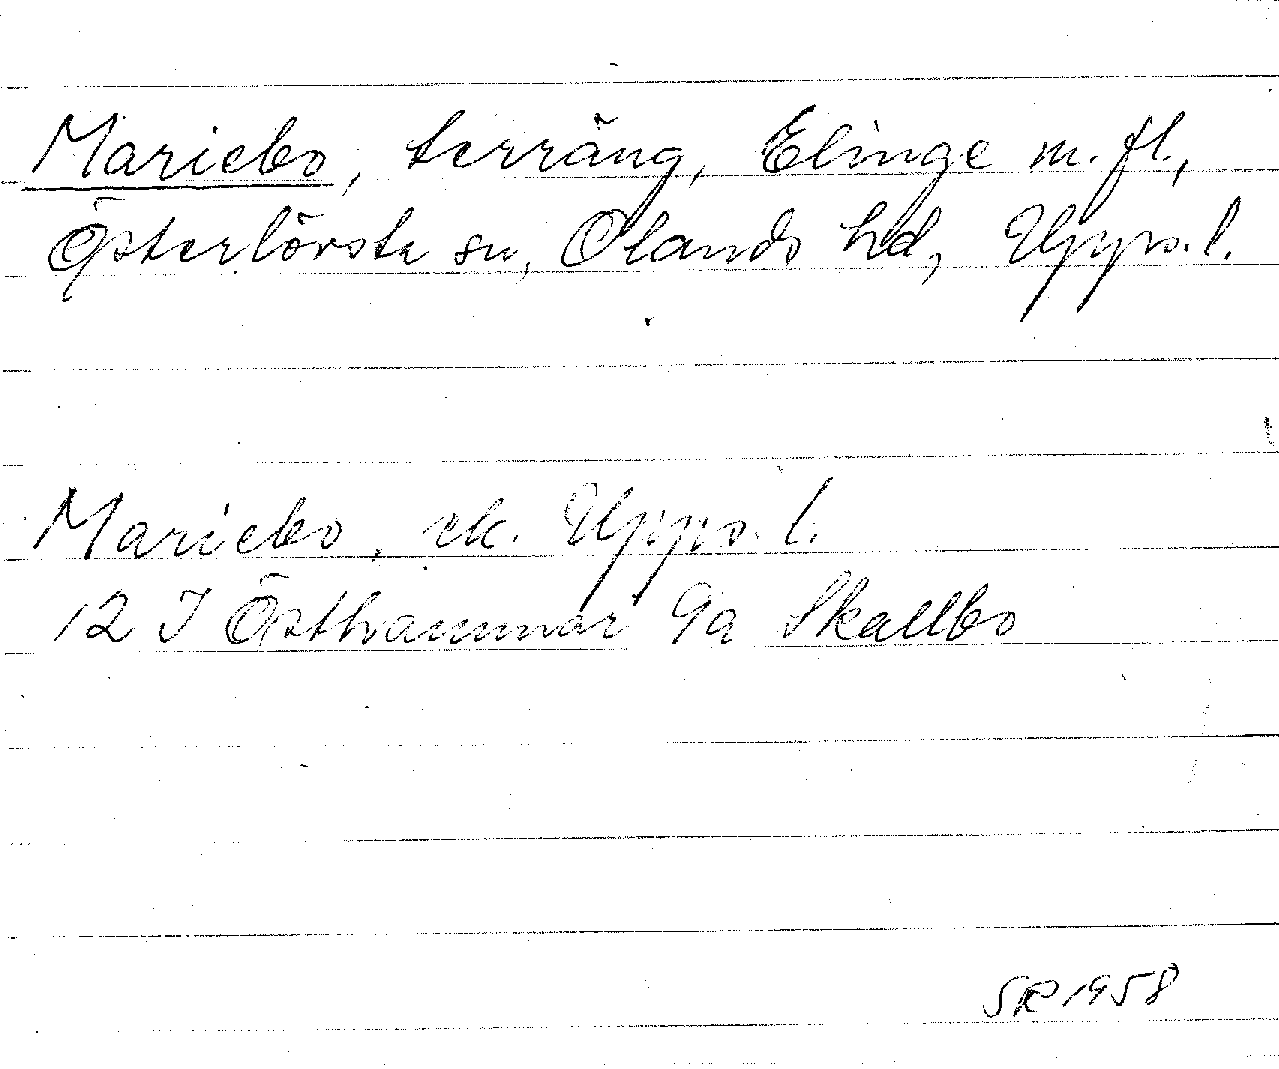 Mariebo, terräng, Elinge m. fl.,
Österlövsta sn, Olands hd, Upps. l.
Mariebo, ek. Upps. l.
12 I Östhammar 9a Skallbo
SR 1958